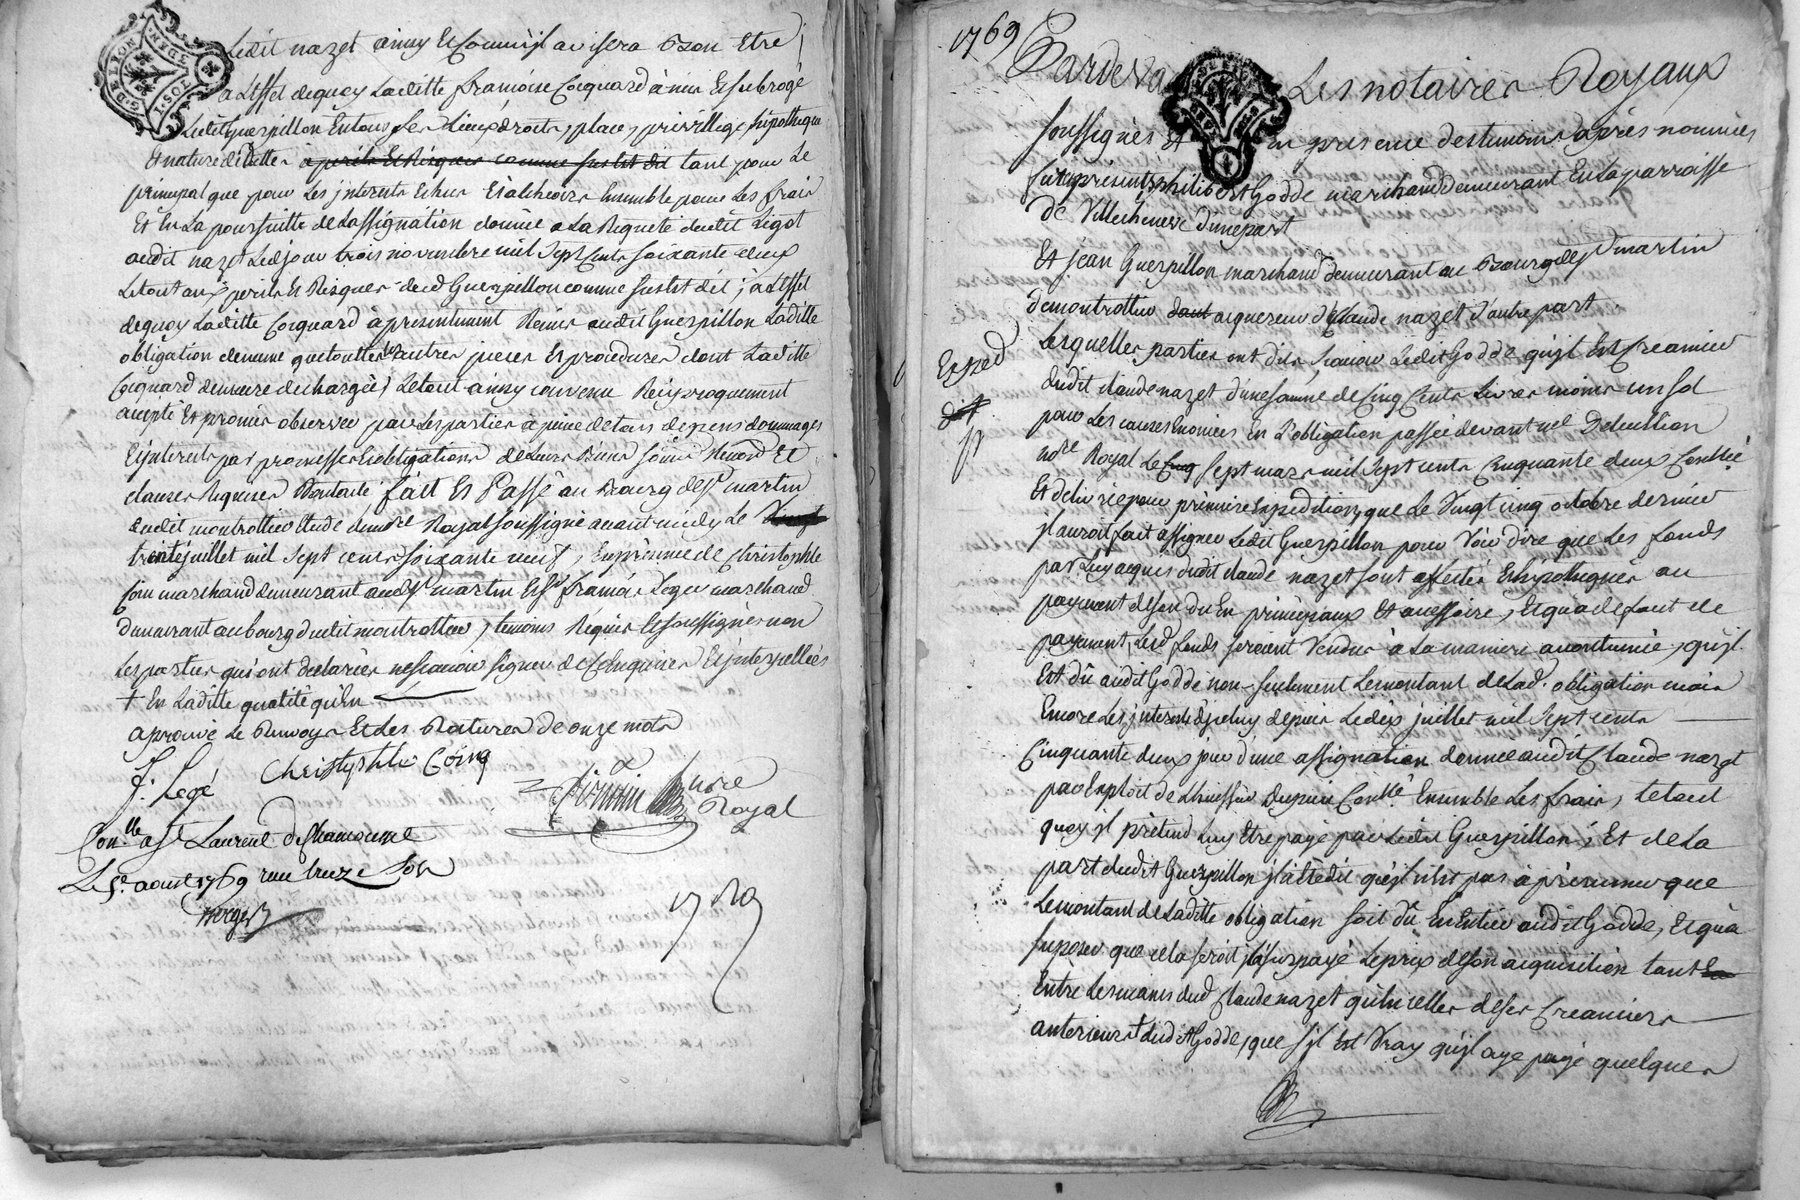 Ledit nazet ainsy Et Comm'il avisera bon Etre ;
a L'effet de quoy Laditte françoise Cocquard à mis Et subrogé
Ledit Guerpillon En tous ses Lieux droits, place, privillege, hipotheque
Et nature de dette aperils Et Risques comme sus Est dit tant pour Le
principal que pour Les jnterets Echus Et à Echeoir Ensemble pour Les frais
Et En La poursuitte de L'assignation donnée a La Requete dudit Ligot
audit nazet Ledjour trois novembre mil Sept Cents soixante deux
Le tout aux perils Et Risques dud Guerpillon comme sus Est dit ; a L'effet
de quoy Laditte Cocquard à presentement Remis audit Guerpillon Laditte
obligation de meme que touttes les autres pieces Et procedures dont Laditte
Cocquard demeure dechargée ; Le tout ainsy convenu Reciproquement
accepté Et promis observer par Les parties à peine de tous depens dommages
Et jnterets par promesses Et obligations de Leurs Biens soumis Renond Et
clauses Requises Dont acte fait Et Passé au Bourg de St martin
dudit montrottier Etude de nore Royal soussigné avant midy Le vingt
trente juillet mil Sept cents soixante neuf, En presence de Christophle
Coin marchand demeurant audSt martin Et Sr françois Leger marchand
Demeurant au bourg dudit montrottier, temoins Requis Et soussignés non
Les parties qui ont declarées ne scavoir signer de ce Enquises Et jnterpellées
+ En Laditte qualité qu'En
aprouvé Le Renvoy Et Les Ratures de onze mots
F. Legé Christophle Coing
nore Royal
Conlle a St Laurent de Chamousset
Le 5e. aout 1769 reçu treize sols
1769
1769 Pardevant Les notaires Royaux
soussignés Et En presence des temoins après nommés
fut present philibert Godde marchand demeurant En La parroisse
de Villecheneve d'une part
Et Jean Guerpillon marchand demeurant au Bourg de St martin
de montrottier dont acquereur de Claude nazet d'autre part
Lesquelles parties ont dit scavoir Ledit Godde qu'jl Est Creancier
dudit Claude nazet d'une somme de Cinq Cents Livres moins un sol
pour Les causes Enoncées En L'obligation passée devant me Delaullion
nore Royal Le Cinq sept mars mil Sept cents Cinquante deux Conllé
Et delivrée pour premiere Expedition, que Le Vingt cinq octobre dernier
jl auroit fait assigner Ledit Guerpillon pour Voir dire que Les fonds
par Luy acquis dudit Claude nazet sont affectés Et hipothequés au
payement de son du En principaux Et accessoire, Et qu'a defaut de
payement, Lesd fonds seroient Vendus à La maniere accoutumée, qu'jl
Est dû audit Godde non-seulement Le montant de Lad. obligation mais
Encore Les jnterets d'jcelluy depuis Le dix juillet mil Sept cents
Cinquante deux jour d'une assignation donnée audit Claude nazet
par Exploit de L'huissier Dupuis Conllé. Ensemble Les frais, Le tout
quoy jl prétend Luy Etre payé par Ledit Guerpillon ; Et de La
part dudit Guerpillon jl a Eté dit qu'jl n'est pas à présumer que
Le montant de Laditte obligation soit dû En Entier audit Godde, Et qu'a
suposer que cela seroit jl a surpayé Le prix de son acquisition tant En
Entre Les mains dud Claude nazet qu'En celles de ses Creanciers
anterieurs + dudit Godde, que s'jl Est Vray qu'jl aye payé quelques
Exped